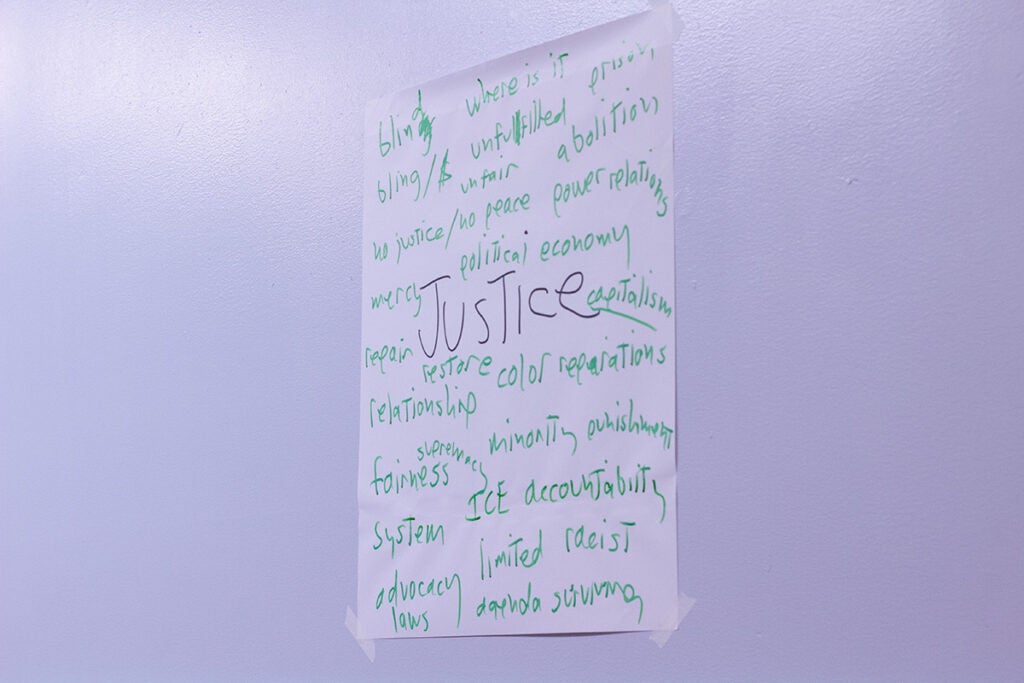 blind where is it prison
bling/$ unfulfilled abolition
unfair
no justice/no peace power relations
political economy
mercy JUSTICE capitalism
repair restore color reparations
relationship
supremacy minority punishment
fairness
system ICE accountability
limited racist
advocacy agenda surviving
laws